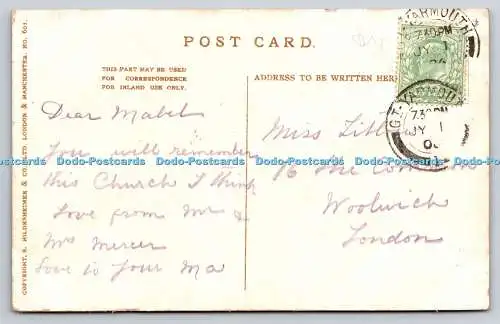 POST CARD.
THIS PART MAY BE USED
FOR CORRESPONDENCE
FOR INLAND USE ONLY.
ADDRESS TO BE WRITTEN HER
COPYRIGHT, S. HILDESHEIMER & CO. LTD. LONDON & MANCHESTER. NO. 601.
GT. YARMOUTH
JY 1
Dear Mabel
You will remember
this Church I think
Love from Mr &
Mrs Mercer
Love to your Ma
Miss
16 The
Woolwich
London
YARMOUTH
7.30PM
JY 1
Dodo-Postcards Dodo-Postcards Dodo-Postcards Dodo-Postcards Dodo-Postcards